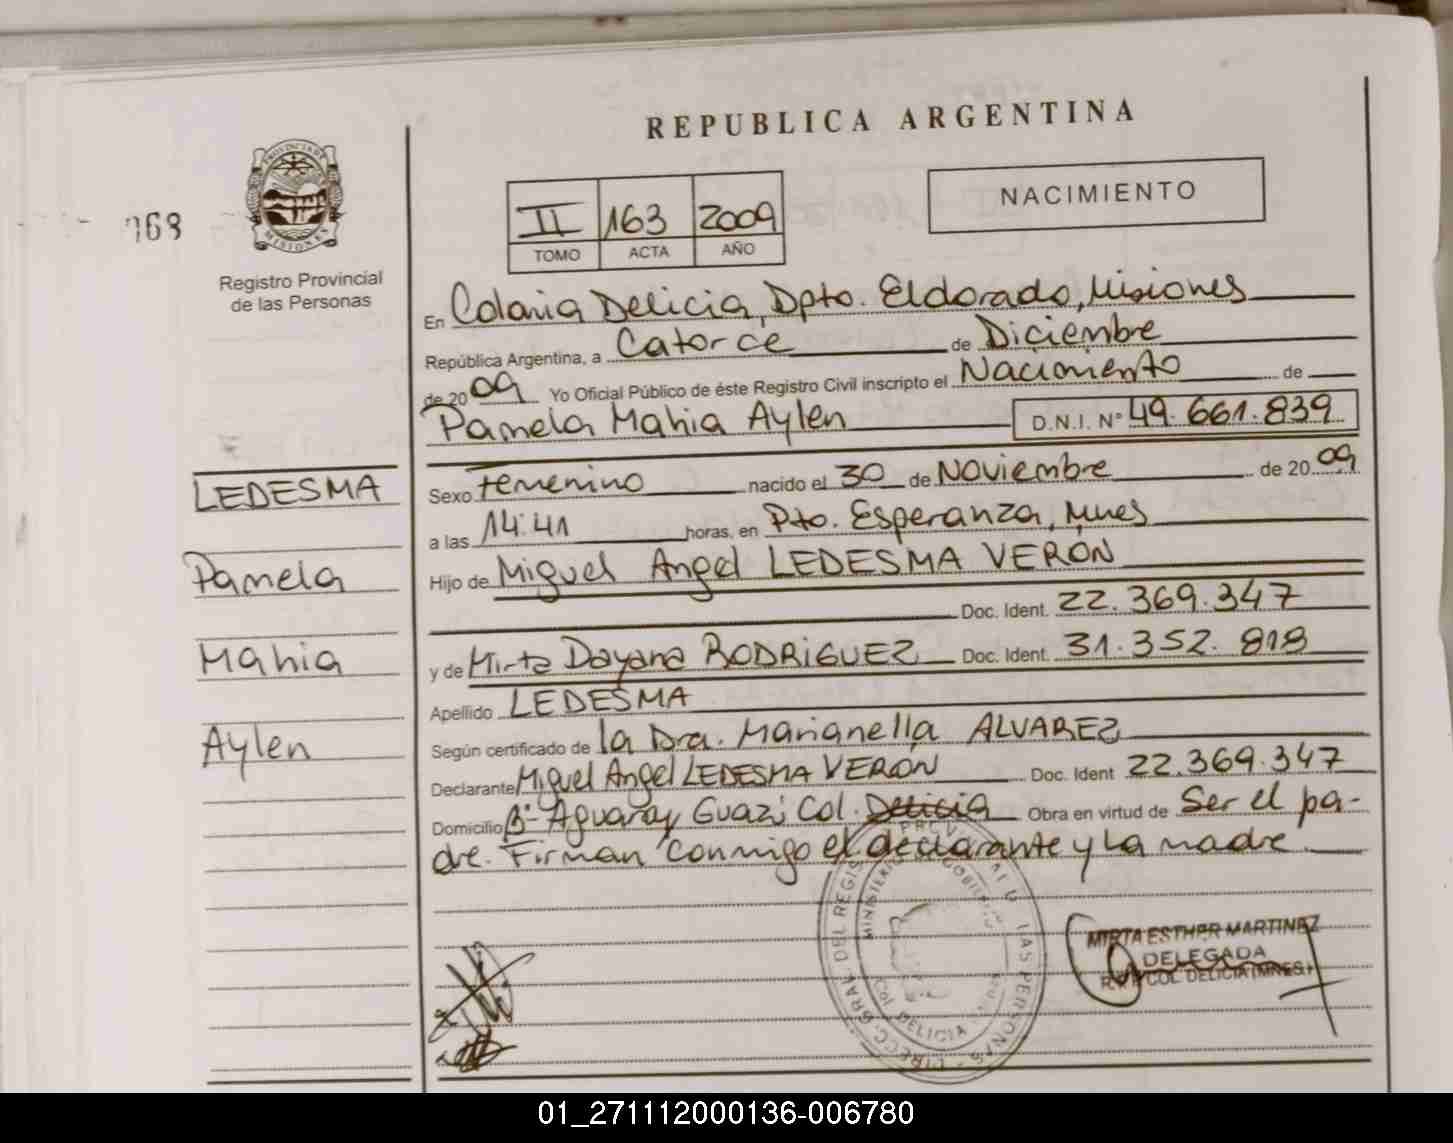 REPUBLICA ARGENTINA
PROVINCIA DE
MISIONES
168
Registro Provincial
de las Personas
II 163 2009
TOMO ACTA AÑO
NACIMIENTO
En Colonia Delicia, Dpto. Eldorado, Misiones
República Argentina, a Catorce de Diciembre
de 2009 Yo Oficial Público de éste Registro Civil inscripto el Nacimiento de
Pamela Mahia Aylen D.N.I. Nº 49.661.839
LEDESMA
Pamela
Mahia
Aylen
Sexo Femenino nacido el 30 de Noviembre de 2009
a las 14:41 horas, en Pto. Esperanza, Mnes
Hijo de Miguel Angel LEDESMA VERON
Doc. Ident. 22.369.347
y de Mirta Dayana RODRIGUEZ Doc. Ident. 31.352.818
Apellido LEDESMA
Según certificado de la Dra. Marianella ALVAREZ
Declarante Miguel Angel LEDESMA VERON Doc. Ident 22.369.347
Domicilio Bº Aguaray Guazú Col. Delicia Obra en virtud de Ser el pa-
dre. Firman conmigo el declarante y la madre.
MIRTA ESTHER MARTINEZ
DELEGADA
R.P.P COL. DELICIA (MNES.)
COL. DELICIA
01_271112000136-006780